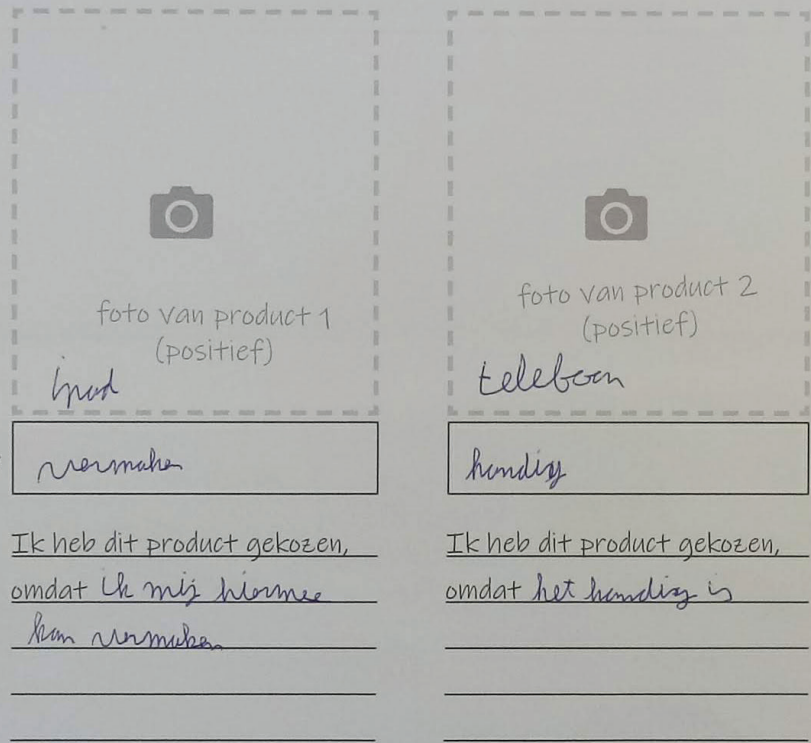 foto van product 1
(positief)
ipad
vermaken
Ik heb dit product gekozen,
omdat ik mij hiermee
kan vermaken
foto van product 2
(positief)
telefoon
handig
Ik heb dit product gekozen,
omdat het handig is